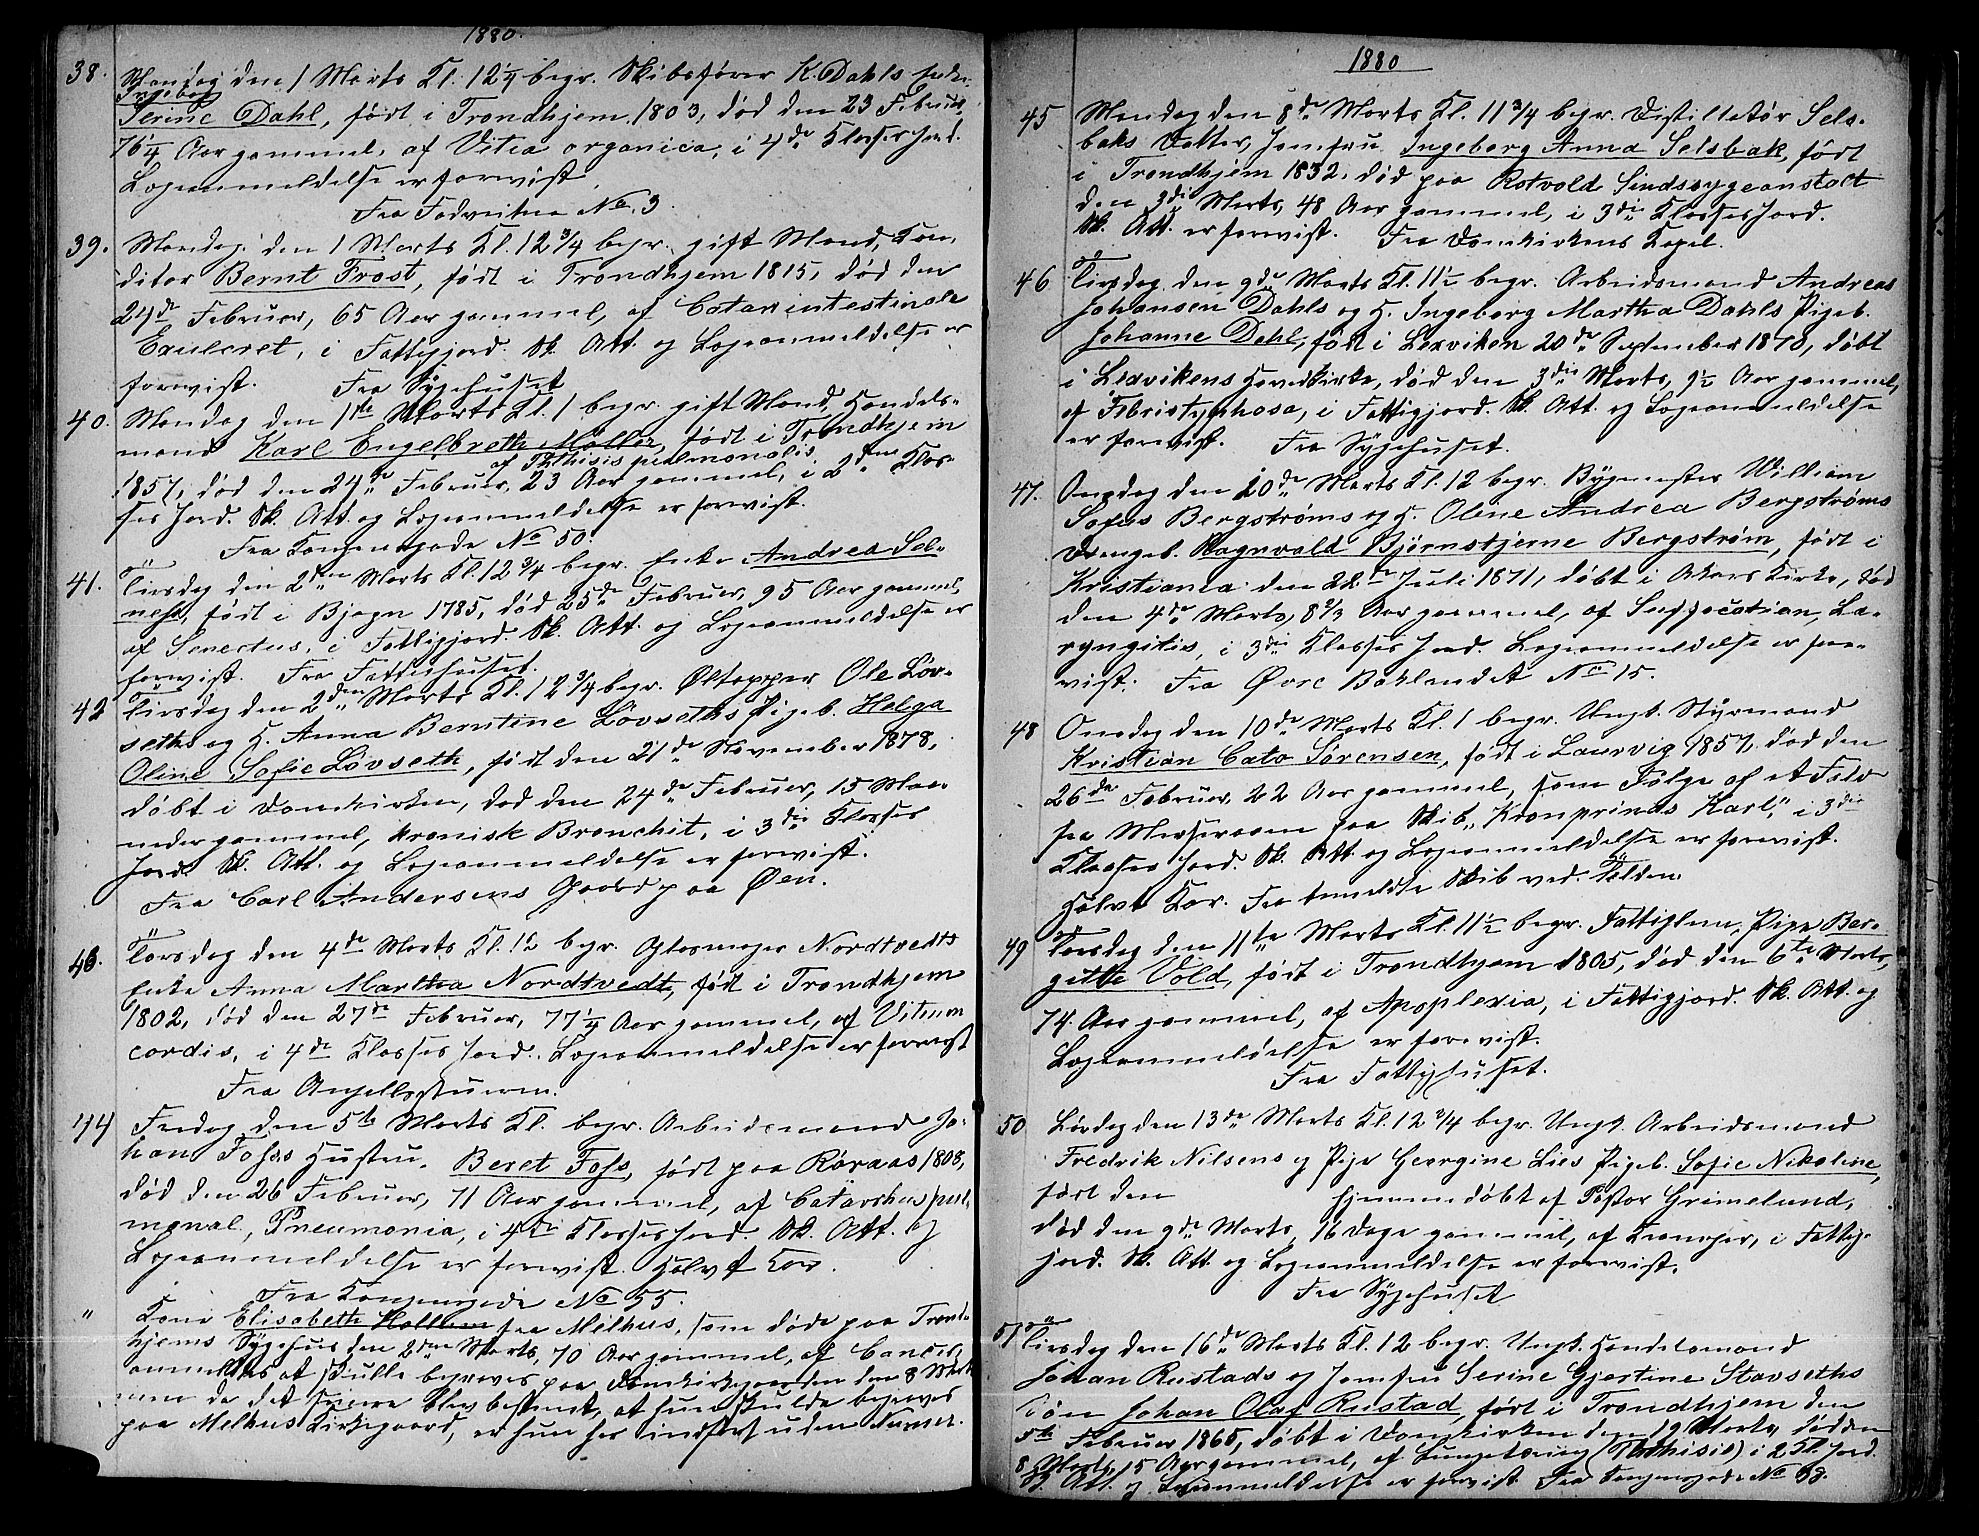 1880.
38. Mandag den 1 Marts Kl. 12¼ begr. Skibsfører K. Dahls Enke
Ingeborg
Serine Dahl, født i Trondhjem 1803, død den 23 Februar,
76¼ Aar gammel, af Vitia organica, i 4de Klasses Jord.
Lægeanmeldelse er forevist.
Fra No. 3.
39. Mandag den 1 Marts Kl. 12¾ begr. gift Mand, Kon-
ditor Bernt Frost, født i Trondhjem 1815, død den
24de Februar, 65 Aar gammel, af Catarr intestinale
Exulceret, i Fattigjord. Sk. Att. og Lægeanmeldelse er
forevist. Fra Sygehuset
40. Mandag den 1ste Marts Kl. 1 begr. gift Mand, Handels-
mand Karl Engelbreth Møller, født i Trondhjem
af Phthisis pulmonalis
1857, død den 24de Februar, 23 Aar gammel, i 2den Klas-
ses Jord. Sk. Att. og Lægeanmeldelse er forevist.
Fra Kongensgade No 50.
41. Tirsdag den 2den Marts Kl. 12¾ begr. Enke Andrea Sel-
ness, født i Bjøgn 1785, død 25de Februar, 95 Aar gammel,
af Senectus, i Fattigjord. Sk. Att. og Lægeanmeldelse er
forevist. Fra Fattighuset.
42 Tirsdag den 2den Marts Kl. 12¾ begr. Øltapper Ole Løv-
seths og H. Anna Berntine Løvseths Pigeb. Helga
Oline Sofie Løvseth, født den 21de November 1878,
døbt i Domkirken, død den 24de Februar, 15 Maa-
neder gammel, kronisk Bronchit, i 3die Klasses
Jord. Sk. Att. og Lægeanmeldelse er forevist.
Fra Carl Andersens Gaard paa Øen.
43. Torsdag den 4de Marts Kl. 12 begr. Glasmager Nordtvedts
Enke Anna Martha Nordtvedt, født i Trondhjem
1802, død den 27de Februar, 77¼ Aar gammel, af Vitium
cordis, i 4de Klasses Jord. Lægeanmeldelse er forevist
Fra Angellsstuen.
44 Fredag den 5te Marts Kl. begr. Arbeidsmand Jo-
han Foss's Hustru, Beret Foss, født paa Røraas 1808,
død den 26 Februar, 71 Aar gammel, af Catarrhus pul-
monal, Pneumonia, i 4de Klasses Jord. Sk. Att. og
Lægeanmeldelse er forevist. Halvt Kor.
Fra Kongensgade No 55.
" Kone Elisabeth Hollum fra Melhus, som døde paa Trond-
hjems Sygehus den 2den Marts, 70 Aar gammel, af Cancer,
anmeldtes at skulle begraves paa Domkirkegaarden den 8 Marts
men da det senere blev bestemt, at hun skulde begraves
paa Melhus Kirkegaard, er hun her indført uden Numer.
1880
45 Mandag den 8de Marts Kl. 11¾ begr. Distillatør Sels-
baks Datter, Jomfru Ingeborg Anna Selsbak, født
i Trondhjem 1832, død paa Rotvold Sindssygeanstalt
den 3die Marts, 48 Aar gammel, i 3die Klasses Jord.
Sk. Att. er forevist. Fra Domkirkens Kapel.
46 Tirsdag den 9de Marts Kl. 11½ begr. Arbeidsmand Andreas
Johansen Dahls og H. Ingeborg Martha Dahls Pigeb.
Johanne Dahl, født i Lexviken 20de September 1870, døbt
i Lexvikens Hovedkirke, død den 3die Marts, 9½ Aar gammel,
af Febris typhosa, i Fattigjord. Sk. Att. og Lægeanmeldelse
er forevist. Fra Sygehuset.
47. Onsdag den 10de Marts Kl. 12 begr. Bygmester William
Sofus Bergstrøms og H. Oline Andrea Bergstrøms
Drengeb. Ragnvald Bjørnstjerne Bergstrøm, født i
Kristiania den 22de Juli 1871, døbt i Akers Kirke, død
den 4de Marts, 8⅔ Aar gammel, af Suffocation, La-
ryngitis, i 3die Klasses Jord. Lægeanmeldelse er fore-
vist. Fra Øvre Baklandet No 15.
48 Onsdag den 10de Marts Kl. 1 begr. Ungk. Styrmand
Kristian Cato Sørensen, født i Laurvig 1857, død den
26de Februar, 22 Aar gammel, som Følge af et Fald
fra Merseraaen paa Skib "Kronprinds Karl", i 3die
Klasses Jord. Sk. Att. og Lægeanmeldelse er forevist.
Halvt Kor. Fra anmeldte Skib ved
49 Torsdag den 11te Marts Kl. 11½ begr. Fattiglem, Pige Ber-
gitte Vold, født i Trondhjem 1805, død den 6te Marts,
74 Aar gammel, af Apoplexia, i Fattigjord. Sk. Att. og
Lægeanmeldelse er forevist.
Fra Fattighuset.
50 Lørdag den 13de Marts Kl. 12¾ begr. Ungk. Arbeidsmand
Fredrik Nilsens og Pige Georgine Lies Pigeb. Sofie Nikoline,
født den hjemmedøbt af Pastor Grimelund,
død den 9de Marts, 16 Dage gammel, af Kramper, i Fattig-
jord. Sk. Att. og Lægeanmeldelse er forevist.
Fra Sygehuset
51 Tirsdag den 16de Marts Kl. 12 begr. Ungk. Handelsmand
Johan Rustads og Jomfru Serine Gjertine Stavseths
Søn Johan Olaf Rustad, født i Trondhjem den
5te Februar 1865, døbt i Domkirken den 19 Marts, død den
8 Marts, 15 Aar gammel, af Lungetæring (Phthisis) i 2 Kl. Jord.
Sk. Att. og Lægeanmeldelse er forevist. Fra Kongensgade No 38.